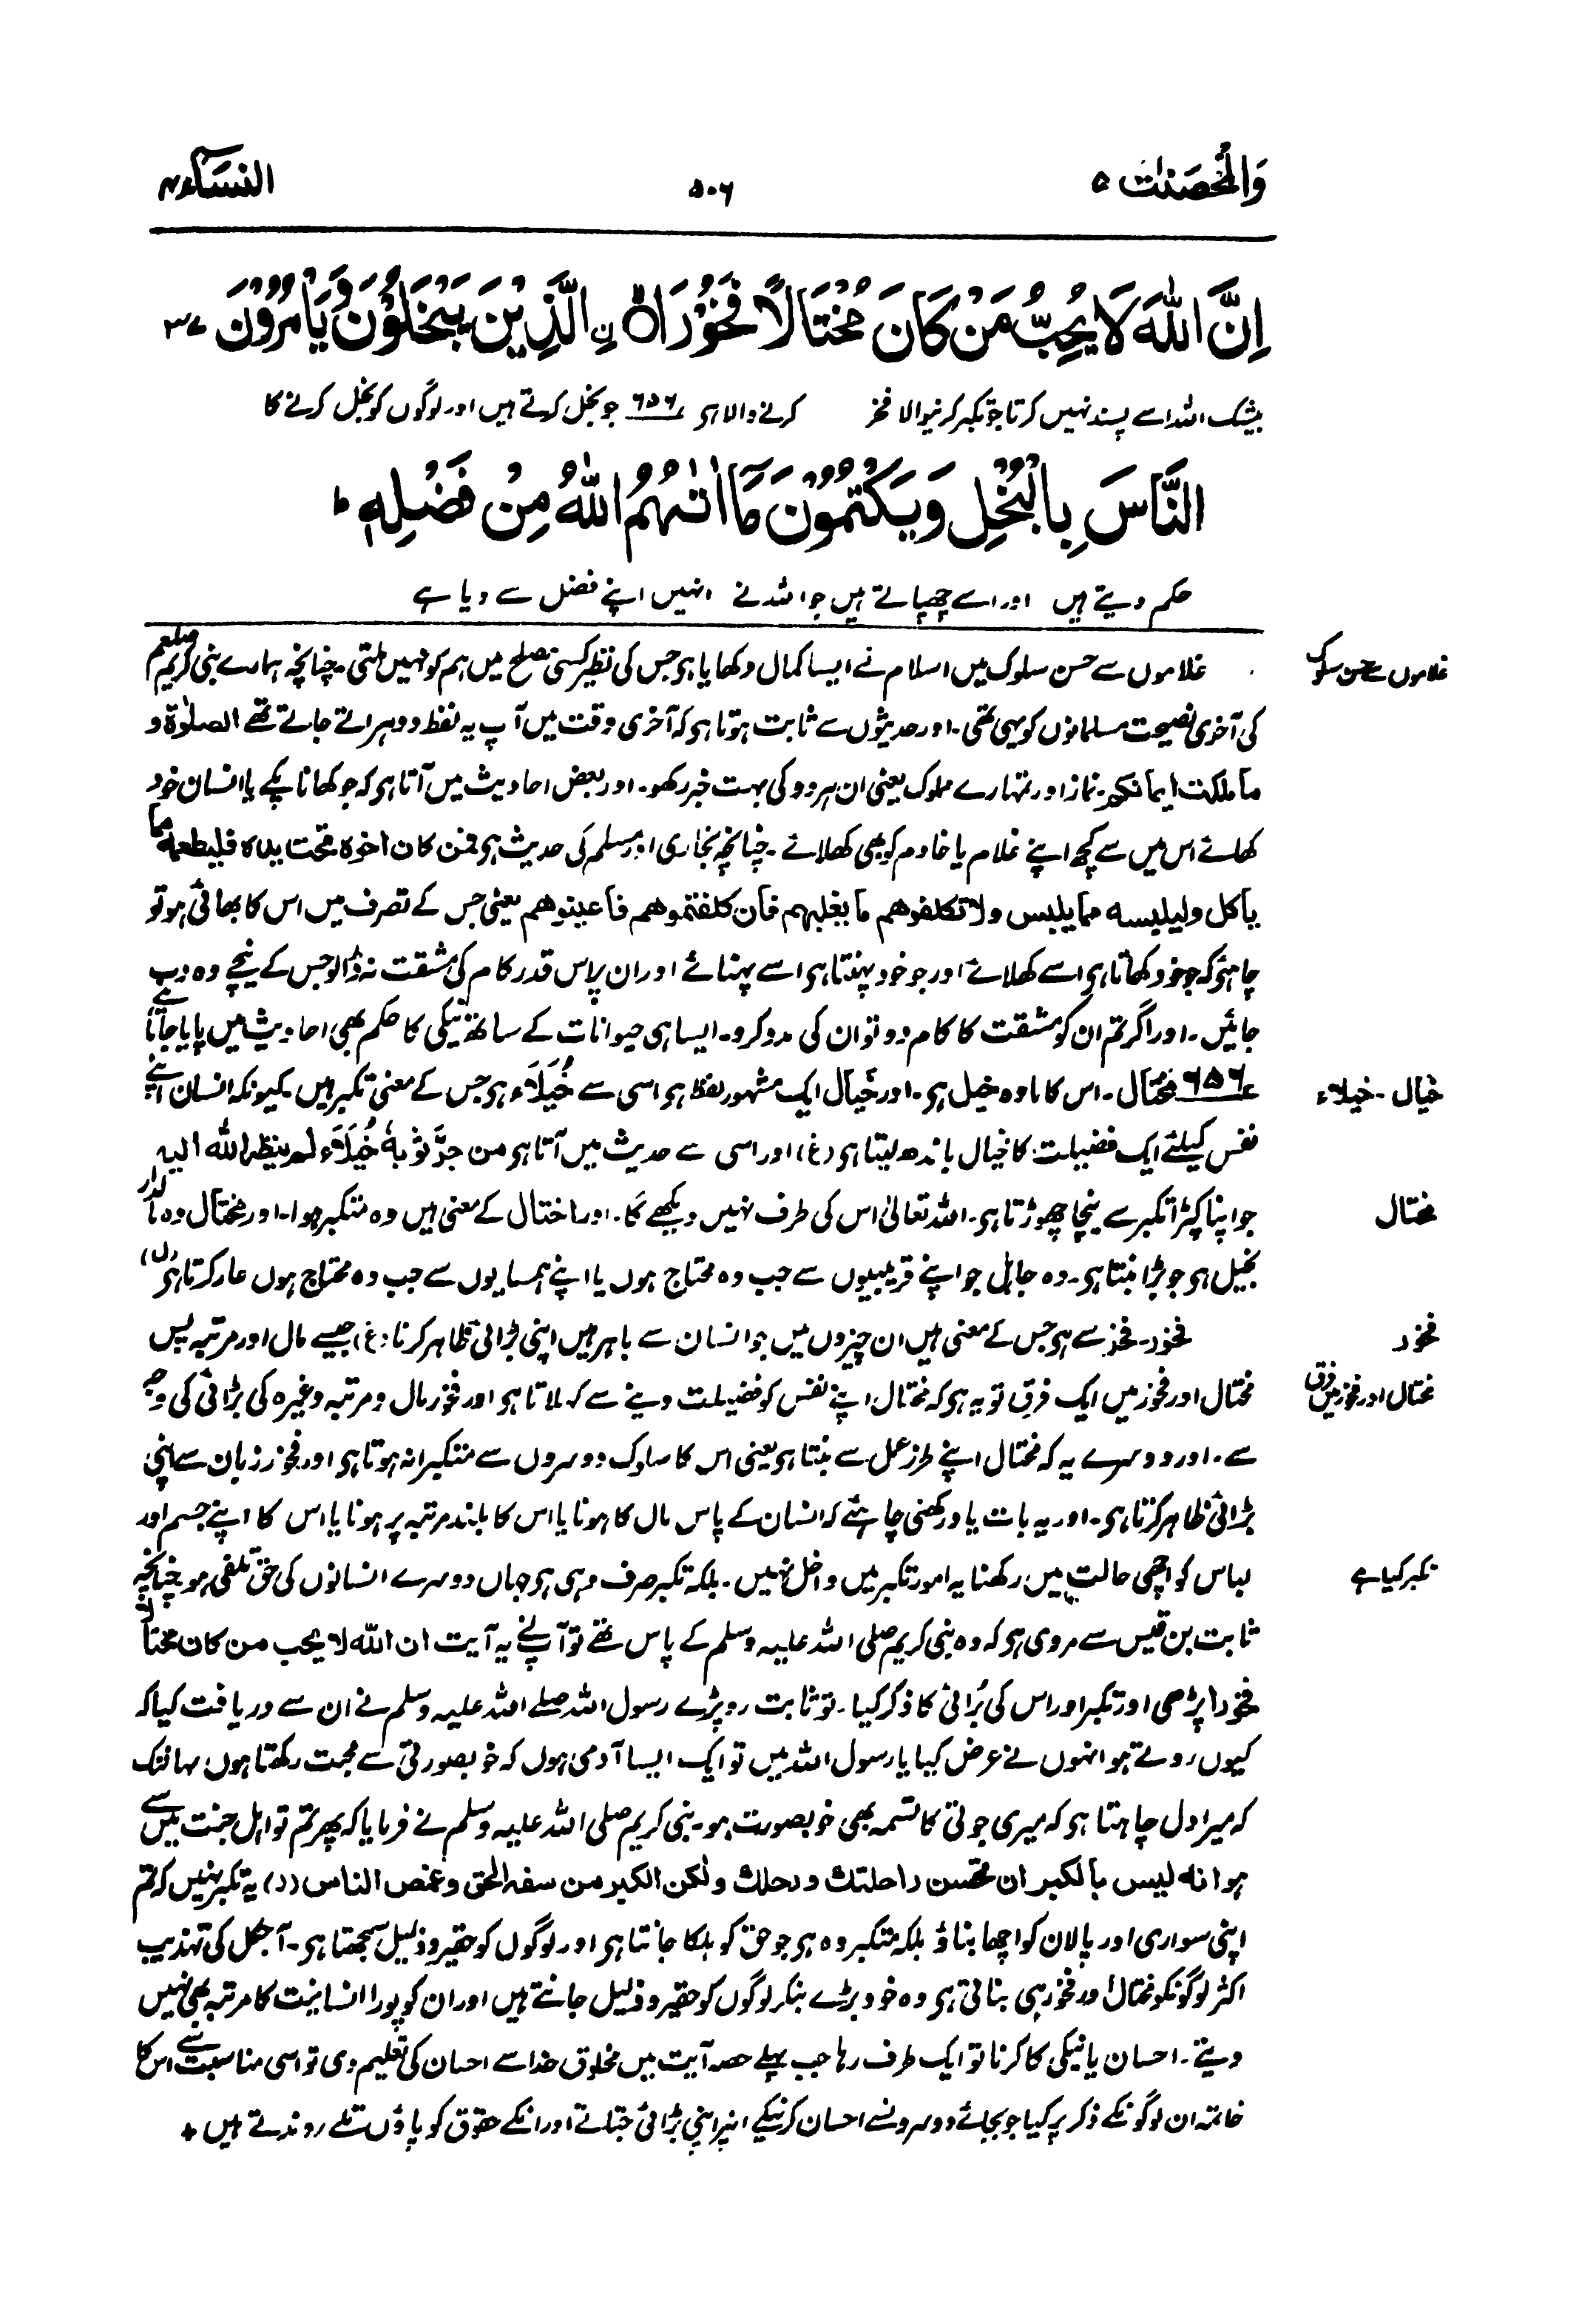 وَالْمُحْصَنٰت ۵
۵۰۶
النسآء ۴
اِنَّ اللّٰهَ لَا یُحِبُّ مَنْ كَانَ مُخْتَالًا فَخُوْرًا ۙ۝ ِ۟الَّذِیْنَ یَبْخَلُوْنَ وَیَاْمُرُوْنَ ۳۷
بیشک اللہ اسے پسند نہیں کرتا جو تکبر کرنیوالا فخر کرنے والا ہی ۶۵۶ جو بخل کرتے ہیں اور لوگوں کو بخل کرنے کا
النَّاسَ بِالْبُخْلِ وَیَكْتُمُوْنَ مَاۤ اٰتٰىهُمُ اللّٰهُ مِنْ فَضْلِهٖ ؕ
حکم دیتے ہیں اور اسے چھپاتے ہیں جو اللہ نے انہیں اپنے فضل سے دیا ہے
غلاموں سے حسن سلوک
غلاموں سے حسن سلوک میں اسلام نے ایسا کمال دکھایا ہی جس کی نظیر کسی مصلح میں ہم کو نہیں ملتی۔ چنانچہ ہمارے نبی کریم صلعم
کی آخری نصیحت مسلمانوں کو یہی تھی۔ اور حدیثوں سے ثابت ہوتا ہی کہ آخری وقت میں آپ یہ لفظ دوہراتے جاتے تھے الصلوٰۃ و
ما ملکت ایمانکم۔ نماز اور تمہارے مملوک یعنی ان ہر دو کی بہت خبر رکھو۔ اور بعض احادیث میں آتا ہی کہ جو کھانا پکے یا انسان خود
کھائے اس میں سے کچھ اپنے غلام یا خادم کو بھی کھلائے۔ چنانچہ بخاری اور مسلم کی حدیث ہی فمن کان اخوہ تحت یدہ فلیطعمہ مما
یاکل ولیلبسہ مما یلبس ولا تکلفوھم ما یغلبہم فان کلفتموھم فاعینوھم یعنی جس کے تصرف میں اس کا بھائی ہو تو
چاہئے کہ جو خود کھاتا ہی اسے کھلائے اور جو خود پہنتا ہی اسے پہنائے اور ان پر اس قدر کام کی مشقت نہ ڈالو جس کے نیچے وہ دب
جائیں۔ اور اگر تم ان کو مشقت کا کام دو تو ان کی مدد کرو۔ ایسا ہی حیوانات کے ساتھ نیکی کا حکم بھی احادیث میں پایا جاتا ہے
خیال۔ خیلاء
۶۵۶ مختال۔ اس کا مادہ خیل ہی۔ اور خَیال ایک مشہور لفظ ہی اسی سے خُیَلَاء ہی جس کے معنی تکبر ہیں۔ کیونکہ انسان اپنے
نفس کیلئے ایک فضیلت کا خیال باندھ لیتا ہی (غ) اور اسی سے حدیث میں آتا ہی من جرَّ ثوبہٗ خُیَلَاء لم ینظر اللہ الیہ
مختال
جو اپنا کپڑا تکبر سے نیچا چھوڑتا ہی۔ اللہ تعالیٰ اس کی طرف نہیں دیکھے گا۔ اور اختال کے معنی ہیں وہ متکبر ہوا۔ اور مختال وہ مالدار
بخیل ہی جو بڑا بنتا ہی۔ وہ جاہل جو اپنے قریبیوں سے جب وہ محتاج ہوں یا اپنے ہمسایوں سے جب وہ محتاج ہوں عار کرتا ہی (ل)
فخور
فخور۔ فخر سے ہی جس کے معنی ہیں ان چیزوں میں جو انسان سے باہر ہیں اپنی بڑائی ظاہر کرنا (غ) جیسے مال اور مرتبہ پس
مختال اور فخور میں فرق
مختال اور فخور میں ایک فرق تو یہ ہی کہ مختال اپنے نفس کو فضیلت دینے سے کہلاتا ہی اور فخور مال و مرتبہ وغیرہ کی بڑائی کی وجہ
سے۔ اور دوسرے یہ کہ مختال اپنے طرز عمل سے بنتا ہی یعنی اس کا سلوک دوسروں سے متکبرانہ ہوتا ہی اور فخور زبان سے اپنی
بڑائی ظاہر کرتا ہی۔ اور یہ بات یاد رکھنی چاہئے کہ انسان کے پاس مال کا ہونا یا اس کا بلند مرتبہ پر ہونا یا اس کا اپنے جسم اور
تکبر کیا ہے
لباس کو اچھی حالت میں رکھنا یہ امور تکبر میں داخل نہیں۔ بلکہ تکبر صرف وہی ہی جہاں دوسرے انسانوں کی حق تلفی ہو چنانچہ
ثابت بن قیس سے مروی ہی کہ وہ نبی کریم صلی اللہ علیہ وسلم کے پاس تھے تو آپ نے یہ آیت ان اللہ لا یحب من کان مختالا
فخورا پڑھی اور تکبر اور اس کی بُرائی کا ذکر کیا۔ تو ثابت رو پڑے رسول اللہ صلے اللہ علیہ وسلم نے ان سے دریافت کیا کہ
کیوں روتے ہو انہوں نے عرض کیا یا رسول اللہ میں تو ایک ایسا آدمی ہوں کہ خوبصورتی سے محبت رکھتا ہوں یہانتک
کہ میرا دل چاہتا ہی کہ میری جوتی کا تسمہ بھی خوبصورت ہو۔ نبی کریم صلی اللہ علیہ وسلم نے فرمایا کہ پھر تم تو اہل جنت میں سے
ہو انہ لیس بالکبر ان تحسن راحلتک ورحلک ولکن الکبر من سفہ الحق وغمص الناس (د) یہ تکبر نہیں کہ تم
اپنی سواری اور پالان کو اچھا بناؤ بلکہ متکبر وہ ہی جو حق کو ہلکا جانتا ہی اور لوگوں کو حقیر و ذلیل سمجھتا ہی۔ آجکل کی تہذیب
اکثر لوگونکو مختال اور فخور ہی بناتی ہی وہ خود بڑے بنکر لوگوں کو حقیر و ذلیل جانتے ہیں اور ان کو پورا انسانیت کا مرتبہ بھی نہیں
دیتے۔ احسان یا نیکی کا کرنا تو ایک طرف رہا جب پہلے حصہ آیت میں مخلوق خدا سے احسان کی تعلیم دی تو اسی مناسبت سے اس کا
خاتمہ ان لوگونکے ذکر پر کیا جو بجائے دوسرونسے احسان کرنیکے انپر اپنی بڑائی جتاتے اور انکے حقوق کو پاؤں تلے روندتے ہیں +